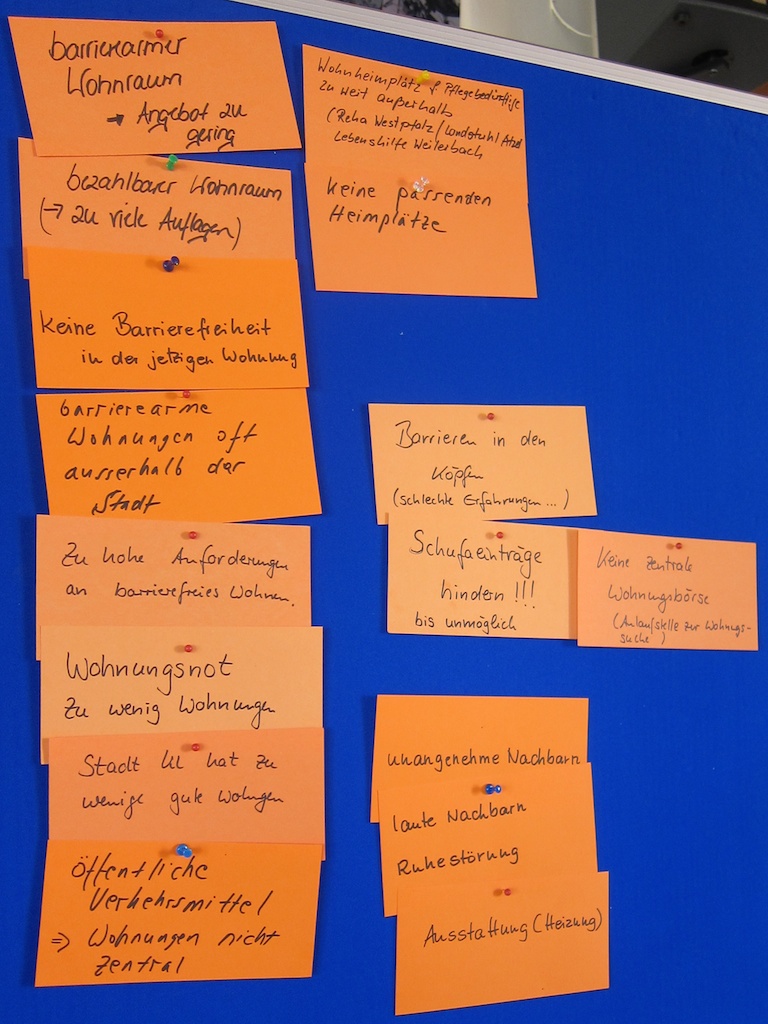 barrierearmer
Wohnraum
→ Angebot zu
gering
bezahlbarer Wohnraum
(→ zu viele Auflagen)
Keine Barrierefreiheit
in der jetzigen Wohnung
barrierearme
Wohnungen oft
ausserhalb der
Stadt
Zu hohe Anforderungen
an barrierefreies Wohnen.
Wohnungsnot
Zu wenig Wohnungen
Stadt KL hat zu
wenige gute Wohngen
öffentliche
Verkehrsmittel
⇒ Wohnungen nicht
zentral
Wohnheimplätze f. Pflegebedürftige
zu weit außerhalb
(Reha Westpfalz/Landstuhl Atzel
Lebenshilfe Weilerbach
keine passenden
Heimplätze
Barrieren in den
Köpfen
(schlechte Erfahrungen...)
Schufaeinträge
hindern!!!
bis unmöglich
Keine zentrale
Wohnungsbörse
(Anlaufstelle zur Wohnungs-
suche)
unangenehme Nachbarn
laute Nachbarn
Ruhestörung
Ausstattung (Heizung)